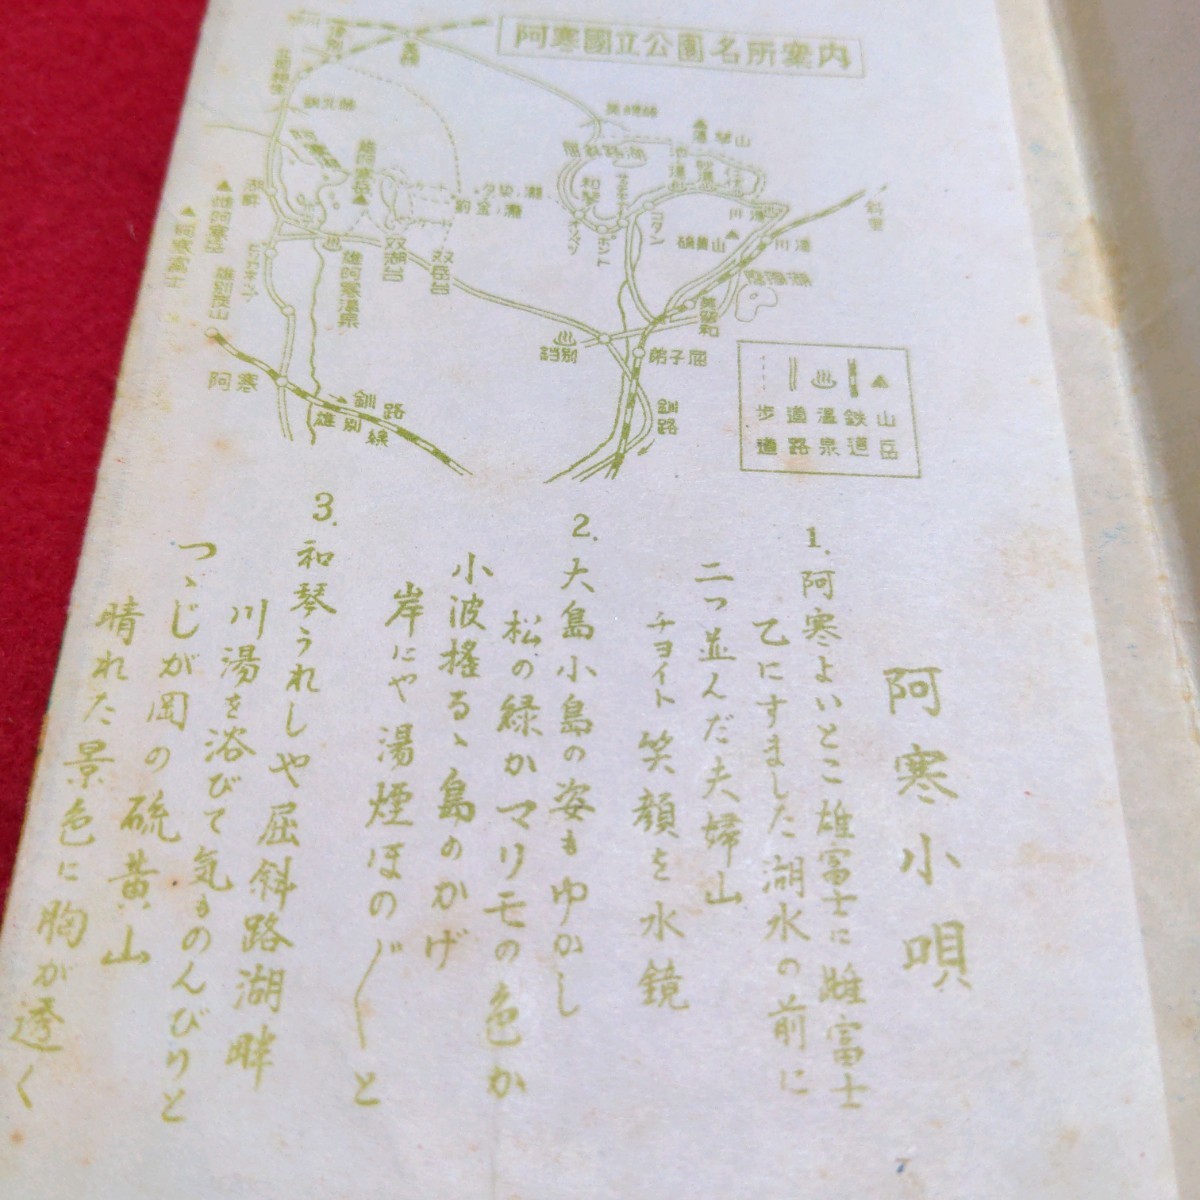 阿寒國立公園名所案内
美幌
津別
北見相生
美幌峠
斜里
和琴
コタン
川湯
硫黄山
美留和
弟子屈
釧路
双湖台
双岳台
雄阿寒岳
雄阿寒温泉
湖畔
雌阿寒岳
阿寒富士
雄別炭山
阿寒
釧路
雄別線
山岳
鉄道
温泉
道路
歩道
阿寒小唄
1. 阿寒よいとこ雄富士に雌富士
乙にすました湖水の前に
二つ並んだ夫婦山
チョイト笑顔を水鏡
2. 大島小島の姿もゆかし
松の緑かマリモの色か
小波搖るゝ島のかげ
岸にや湯煙ほのぼ〲と
3. 和琴うれしや屈斜路湖畔
川湯を浴びて気ものんびりと
つゝじが岡の硫黄山
晴れた景色に胸が透く
7